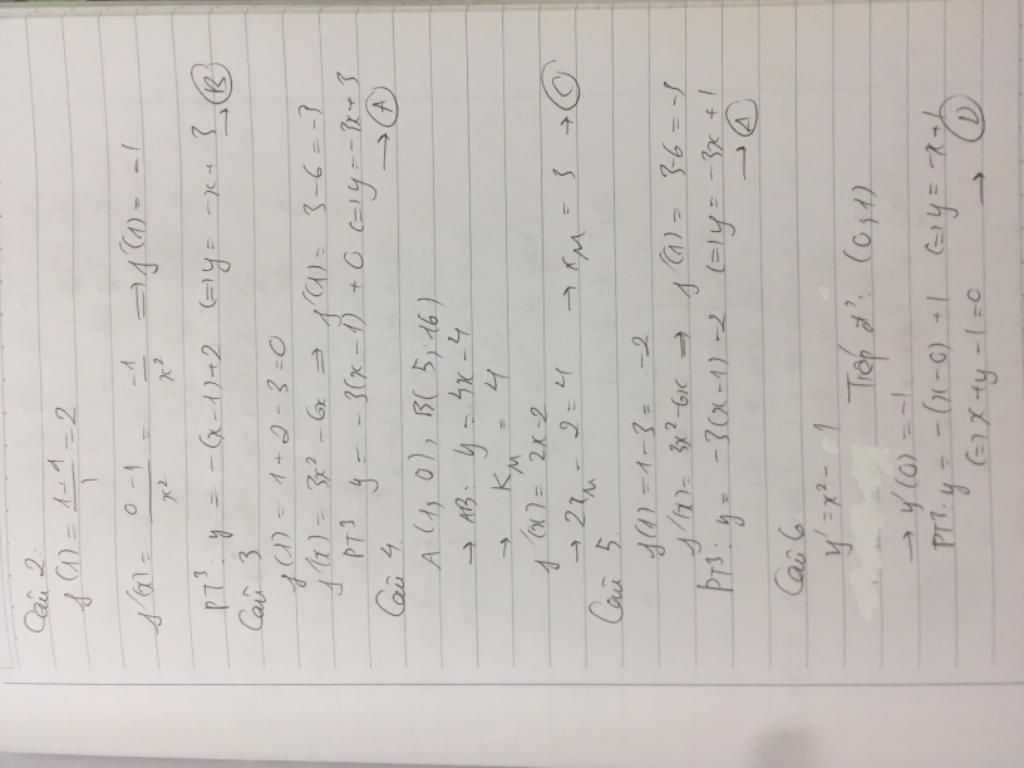 Câu 2:
f(1) = (1+1)/1 = 2
f'(x) = (0-1)/x² = -1/x² => f'(1) = -1
PT³: y = -(x-1)+2 (=) y = -x+3 → (B)
Câu 3
f(1) = 1+2-3=0
f'(x) = 3x²-6x => f'(1) = 3-6=-3
PT³ y = -3(x-1)+0 (=) y=-3x+3
→ (A)
Câu 4.
A(1,0), B(5,16)
→ AB: y = 4x-4
→ K_M = 4
f'(x) = 2x-2
→ 2x_M - 2 = 4 → x_M = 3 → (C)
Câu 5.
f(1) = 1-3= -2
f'(x) = 3x²-6x → f'(1) = 3-6=-3
PT³: y = -3(x-1)-2 (=) y = -3x+1
→ (A)
Câu 6.
y' = x² - 1 Tiếp đ²: (0,1)
→ y'(0) = -1
PT²: y = -(x-0)+1 (=) y = -x+1
(=) x+y-1=0 → (D)